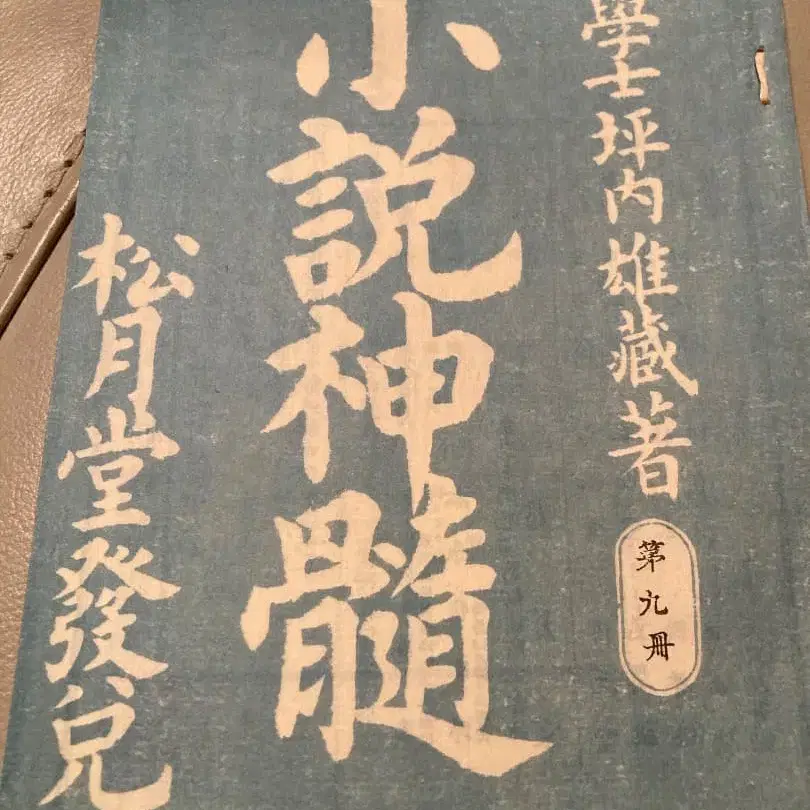 學士坪内雄藏著
第九冊
小説神髓
松月堂發兌